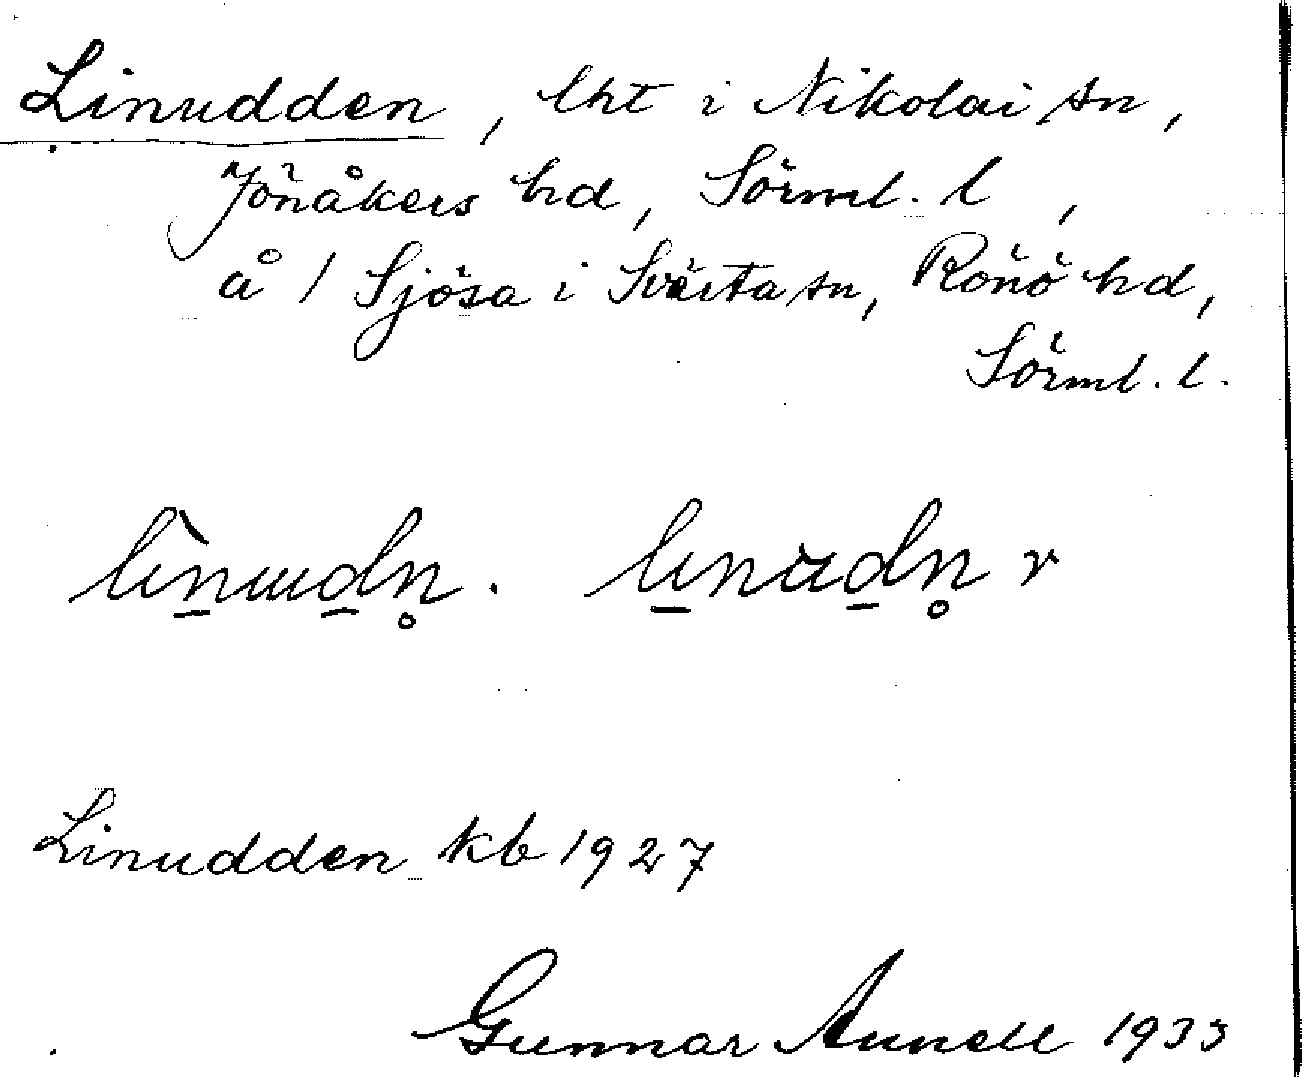 Linudden, lht i Nikolai sn,
Jönåkers hd, Sörml. l,
å 1 Sjösa i Svärta sn, Rönö hd,
Sörml. l.
li̇̀n̠ɯd̠n̥. lın̠ud̠n̥ r
Linudden kb 1927
Gunnar Aunell 1933